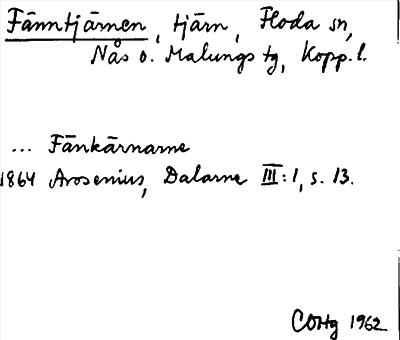 Fänntjärnen, tjärn, Floda sn,
Nås o. Malungs tg, Kopp. l.
... Fänkärnarne
1864 Arosenius, Dalarne III:1, s. 13.
COHg 1962